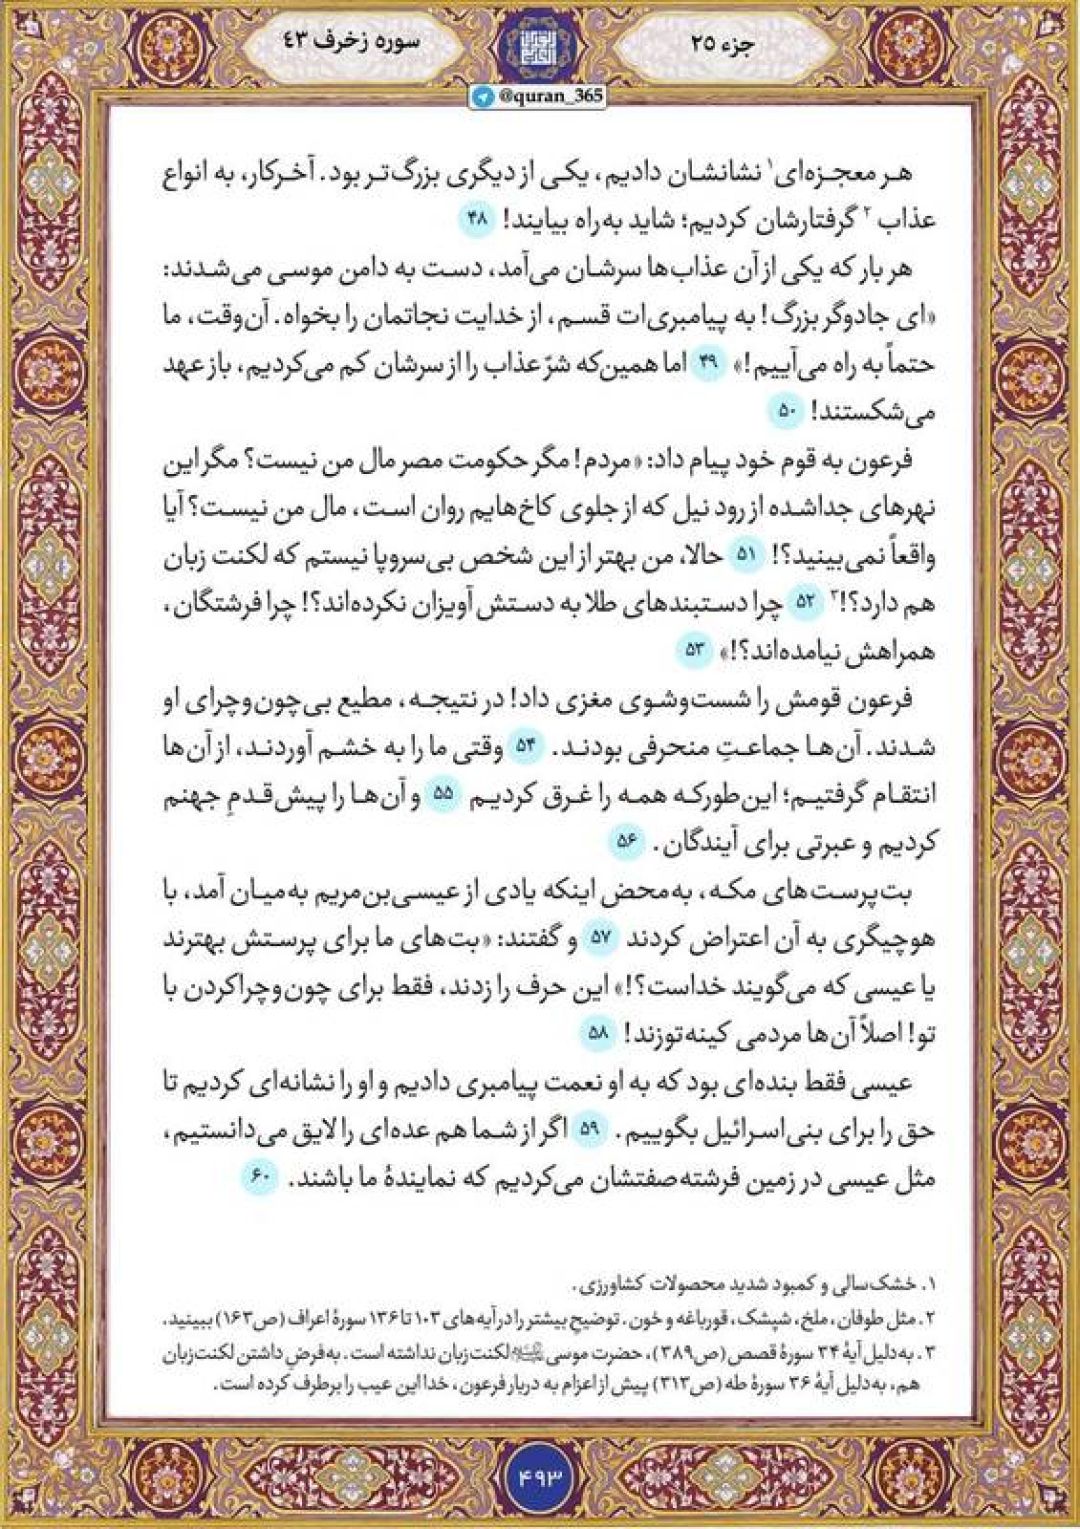 جزء ۲۵
سوره زخرف ٤٣
@quran_365
هر معجزه‌ای۱ نشانشان دادیم، یکی از دیگری بزرگ‌تر بود. آخرکار، به انواع
عذاب۲ گرفتارشان کردیم؛ شاید به‌راه بیایند! ۴۸
هر بار که یکی از آن عذاب‌ها سرشان می‌آمد، دست به دامن موسی می‌شدند:
«ای جادوگر بزرگ! به پیامبری‌ات قسم، از خدایت نجاتمان را بخواه. آن‌وقت، ما
حتماً به راه می‌آییم!» ۴۹ اما همین‌که شرّ عذاب را از سرشان کم می‌کردیم، باز عهد
می‌شکستند! ۵۰
فرعون به قوم خود پیام داد: «مردم! مگر حکومت مصر مال من نیست؟ مگر این
نهرهای جداشده از رود نیل که از جلوی کاخ‌هایم روان است، مال من نیست؟ آیا
واقعاً نمی‌بینید؟! ۵۱ حالا، من بهتر از این شخص بی‌سروپا نیستم که لکنت زبان
هم دارد؟!۳ ۵۲ چرا دستبندهای طلا به دستش آویزان نکرده‌اند؟! چرا فرشتگان،
همراهش نیامده‌اند؟!» ۵۳
فرعون قومش را شست‌وشوی مغزی داد! در نتیجه، مطیع بی‌چون‌وچرای او
شدند. آن‌ها جماعتِ منحرفی بودند. ۵۴ وقتی ما را به خشم آوردند، از آن‌ها
انتقام گرفتیم؛ این‌طورکه همه را غرق کردیم ۵۵ و آن‌ها را پیش‌قدمِ جهنم
کردیم و عبرتی برای آیندگان. ۵۶
بت‌پرست‌های مکه، به‌محض اینکه یادی از عیسی‌بن‌مریم به‌میان آمد، با
هوچیگری به آن اعتراض کردند ۵۷ و گفتند: «بت‌های ما برای پرستش بهترند
یا عیسی که می‌گویند خداست؟!» این حرف را زدند، فقط برای چون‌وچراکردن با
تو! اصلاً آن‌ها مردمی کینه‌توزند! ۵۸
عیسی فقط بنده‌ای بود که به او نعمت پیامبری دادیم و او را نشانه‌ای کردیم تا
حق را برای بنی‌اسرائیل بگوییم. ۵۹ اگر از شما هم عده‌ای را لایق می‌دانستیم،
مثل عیسی در زمین فرشته‌صفتشان می‌کردیم که نمایندهٔ ما باشند. ۶۰
۱. خشک‌سالی و کمبود شدید محصولات کشاورزی.
۲. مثل طوفان، ملخ، شپشک، قورباغه و خون. توضیحِ بیشتر را در آیه‌های ۱۰۳ تا ۱۳۶ سورهٔ اعراف (ص۱۶۳) ببینید.
۳. به‌دلیل آیهٔ ۳۴ سورهٔ قصص (ص۳۸۹)، حضرت موسی لکنت‌زبان نداشته است. به‌فرضِ داشتن لکنت‌زبان
هم، به‌دلیل آیهٔ ۳۶ سورهٔ طه (ص۳۱۳) پیش از اعزام به دربار فرعون، خدا این عیب را برطرف کرده است.
۴۹۳